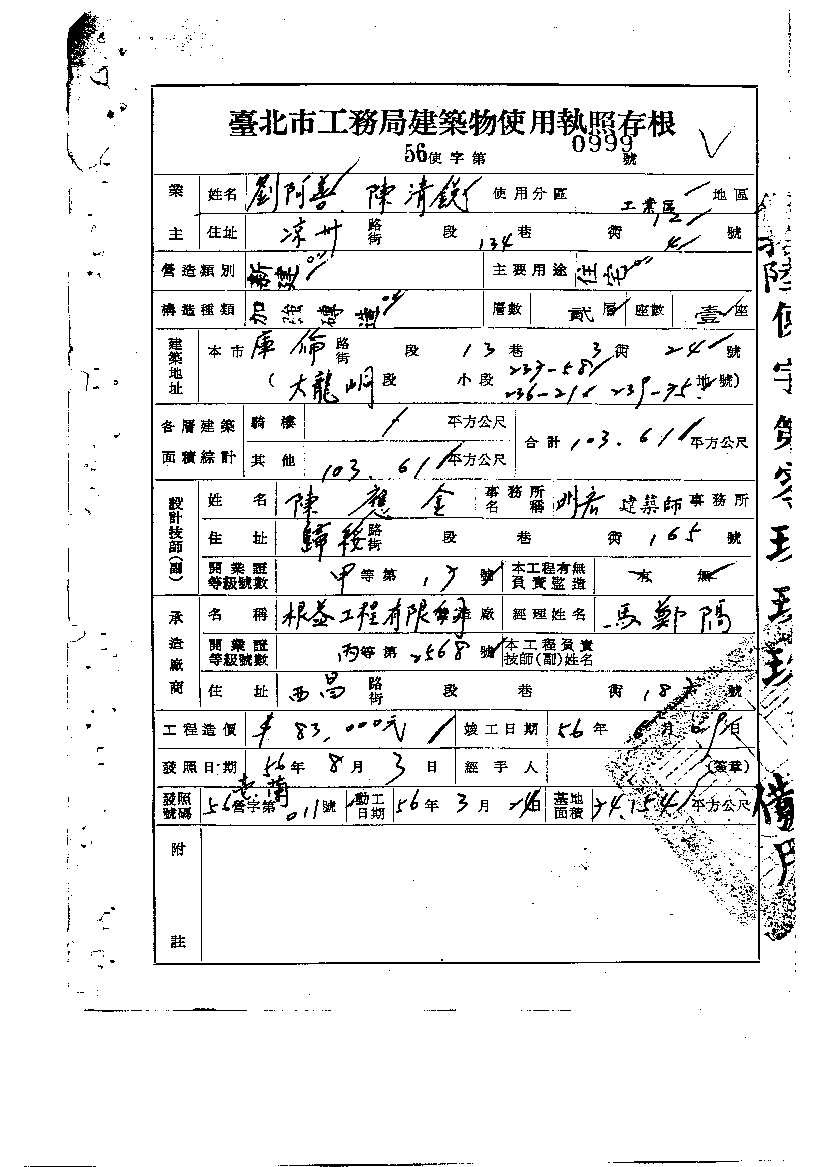 臺北市工務局建築物使用執照存根
56使字第 0999 號
業主 姓名 劉阿善 陳清銳 使用分區 工業區 地區
住址 涼州 路街 段 134 巷 街 4 號
營造類別 新建 主要用途 住宅
構造種類 加強磚造 層數 貳層 座數 壹座
建築地址 本市 庫倫 路街 段 13 巷 3 街 24 號
(大龍峒 段 小段 237-58 236-21 239-75 地號)
各層建築面積綜計 騎樓 / 平方公尺 合計 103.61 平方公尺
其他 103.61 平方公尺
設計技師(副) 姓名 陳應金 事務所名稱 明宏 建築師事務所
住址 歸綏 路街 段 巷 街 165 號
開業證等級號數 甲等第 號 本工程有無負責監造 有 無
承造廠商 名稱 根益工程有限 造廠 經理姓名 馬鄭陽
開業證等級號數 丙等第 2568 號 本工程負責技師(副)姓名
住址 西昌 路街 段 巷 街 18 號
工程造價 83,000元 竣工日期 56年 6月 日
發照日期 56年 8月 3日 經手人 (簽章)
發照號碼 56 營字第 011 號 動工日期 56年 3月 24日 基地面積 74.154 平方公尺
附註
陸使字第零玖玖玖